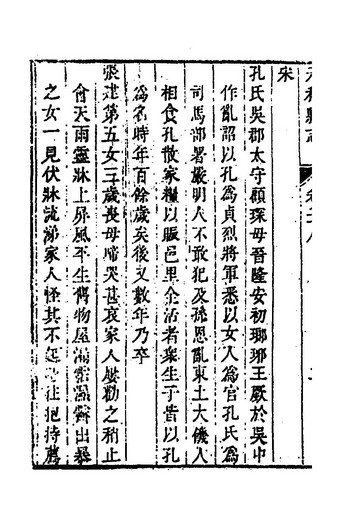 宋
孔氏吳郡太守顧琛母晉隆安初瑯琊王厥於吳中
作亂詔以孔為貞烈將軍悉以女人為官孔氏為
司馬部署嚴明人不敢犯及孫恩亂東土大饑人
相食孔散家糧以賑邑里全活者衆生子皆以孔
為名時年百餘歲矣後又數年乃卒
張建第五女三歲喪母啼哭甚哀家人屢勸之稍止
會天雨靈牀上屏風平生舊物屋漏沾濕辭出暴
之女一見伏牀流涕家人怪其不起往抱持薦